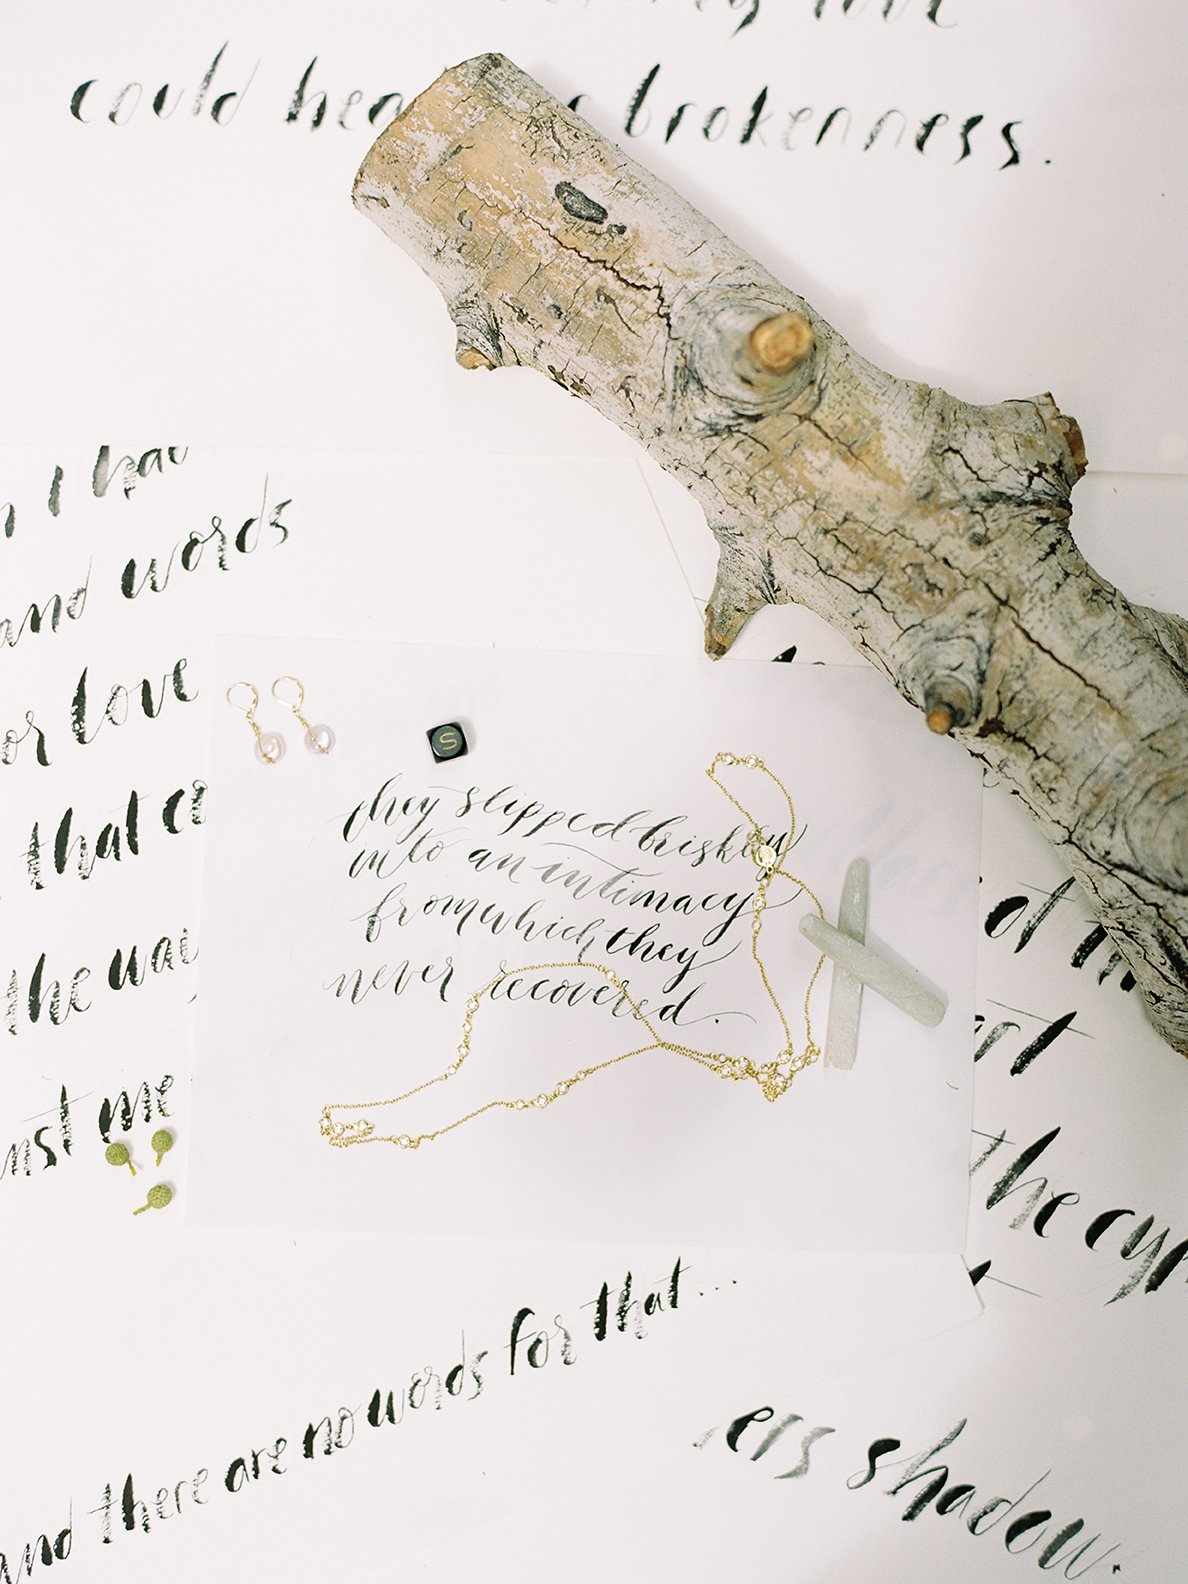 love
could hea brokenness.
I hav
and words
or love
that co
the wai
nst me
S
they slipped briskly
into an intimacy
from which they
never recovered.
ot m
art
the cyp
and there are no words for that...
ers shadow.